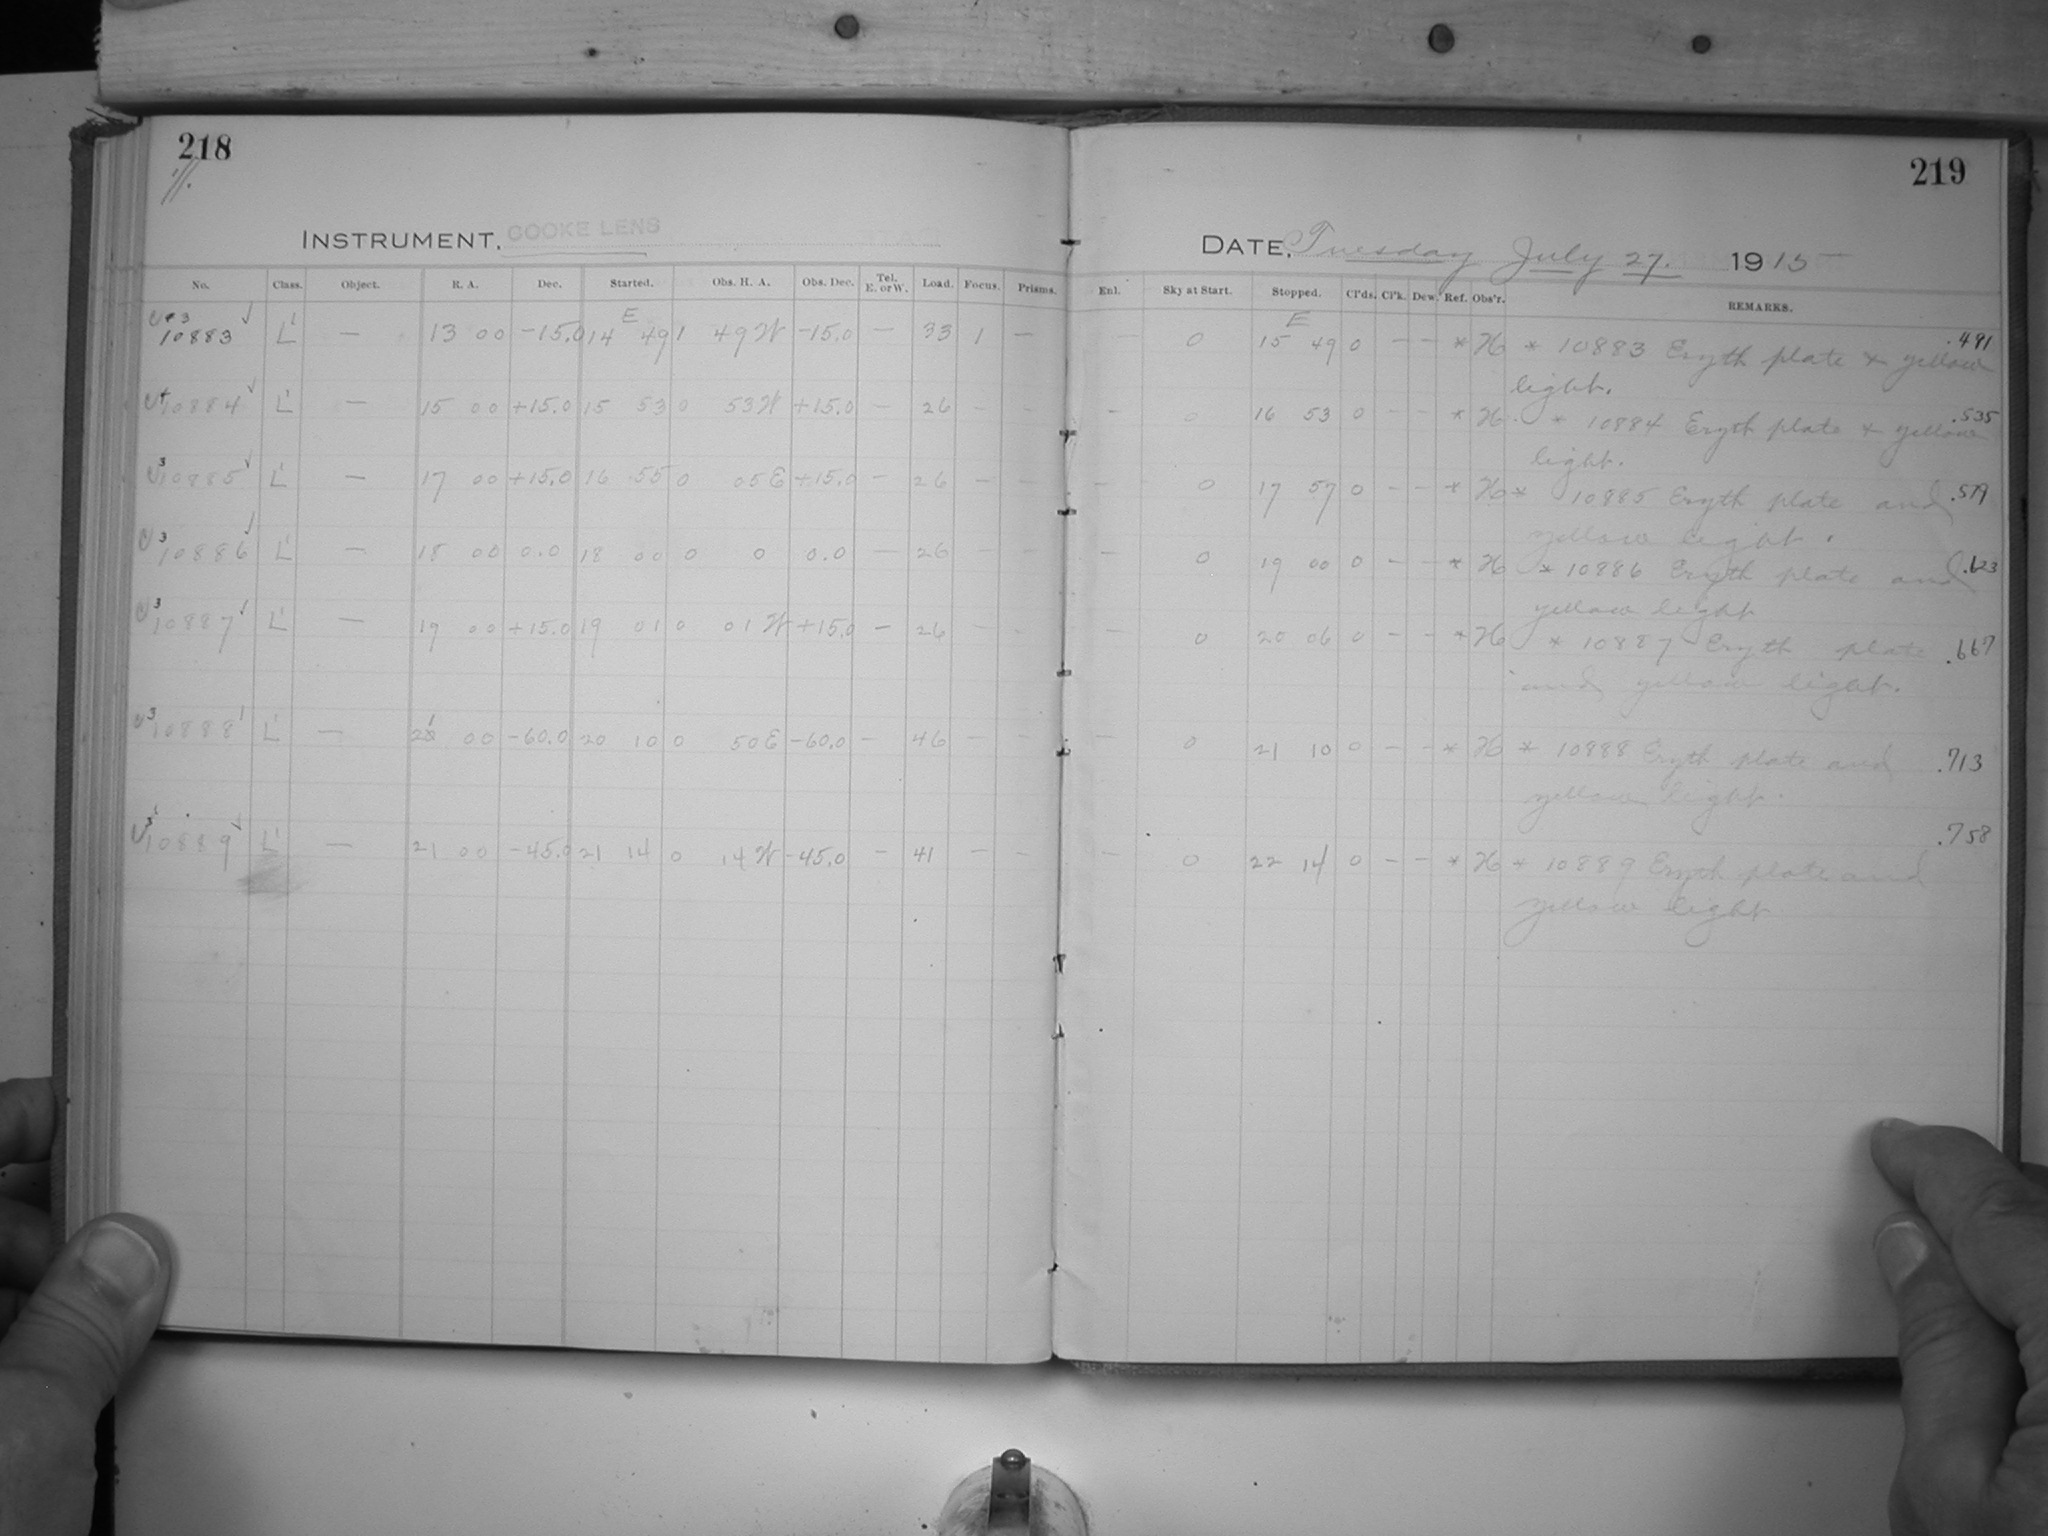 218
219
INSTRUMENT, COOKE LENS
DATE, Tuesday July 27. 1915
No. Class. Object. R. A. Dec. Started. Obs. H. A. Obs. Dec. Tel. E. or W. Load. Focus. Prisms. Enl. Sky at Start. Stopped. Cl'ds. Cl'k. Dew. Ref. Obs'r. REMARKS.
10883 L — 13 00 -15.0 14 E 49 1 49 W -15.0 — 33 1 — — 0 15 E 49 0 — — * H * 10883 Eryth plate & yellow .491
light.
10884 L — 15 00 +15.0 15 53 0 53 W +15.0 — 26 — — — 0 16 53 0 — — * H * 10884 Eryth plate & yellow .535
light.
10885 L — 17 00 +15.0 16 55 0 05 E +15.0 — 26 — — — 0 17 57 0 — — * H * 10885 Eryth plate and .579
yellow light.
10886 L — 18 00 0.0 18 00 0 0 0.0 — 26 — — — 0 19 00 0 — — * H * 10886 Eryth plate and .623
yellow light
10887 L — 19 00 +15.0 19 01 0 01 W +15.0 — 26 — — — 0 20 06 0 — — * H * 10887 Eryth plate .667
and yellow light.
10888 L — 21 00 -60.0 20 10 0 50 E -60.0 — 46 — — — 0 21 10 0 — — * H * 10888 Eryth plate and .713
yellow light.
10889 L — 21 00 -45.0 21 14 0 14 W -45.0 — 41 — — — 0 22 14 0 — — * H * 10889 Eryth plate and .758
yellow light